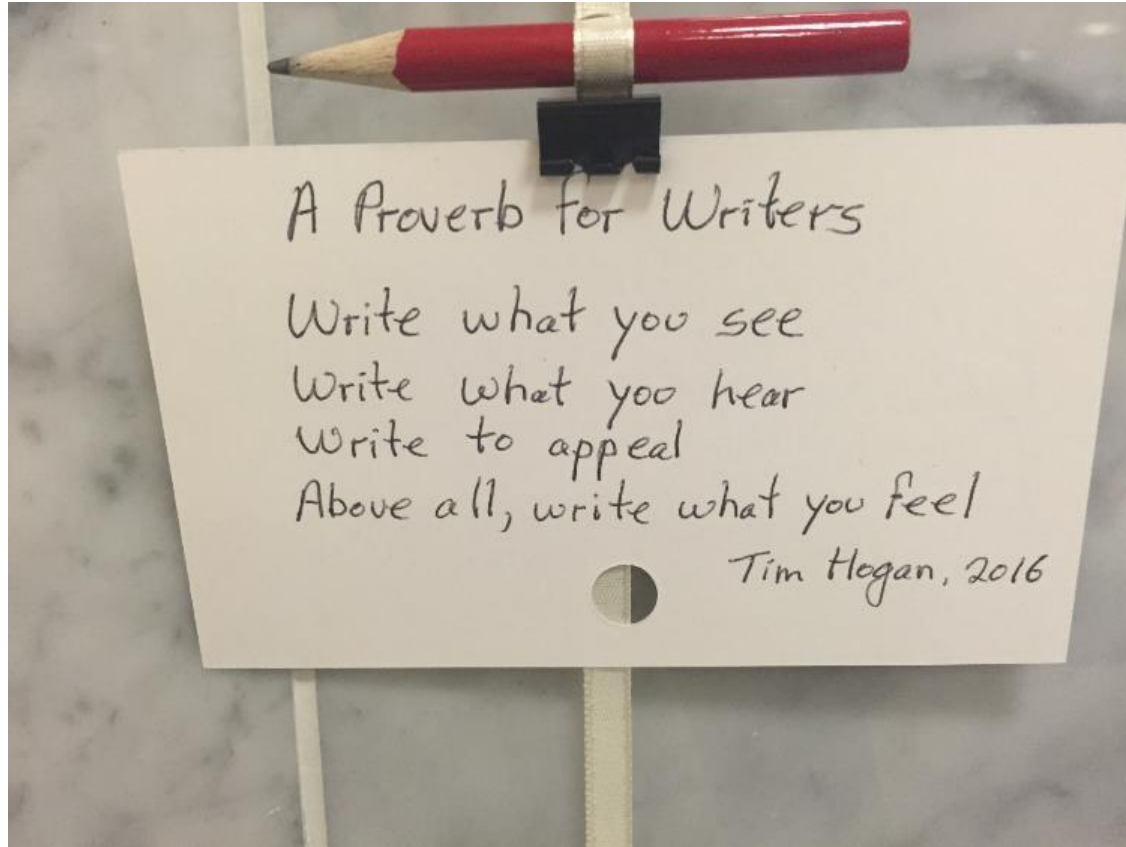 A Proverb for Writers
Write what you see
Write what you hear
Write to appeal
Above all, write what you feel
Tim Hogan, 2016